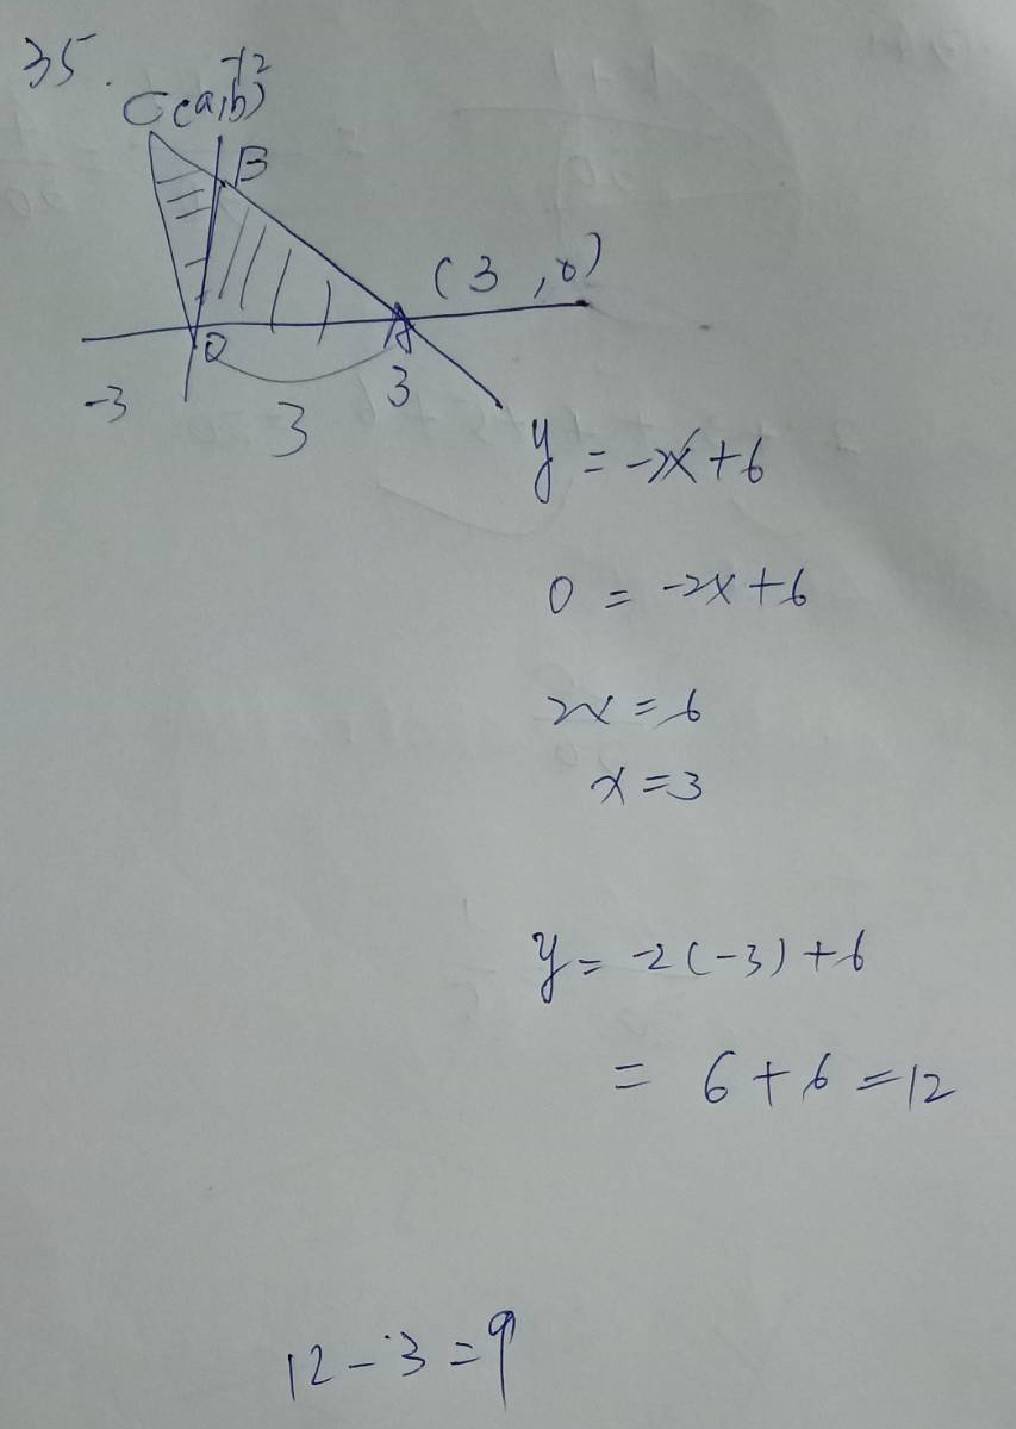 35.
12
C(a,b)
B
(3,0)
O
A
-3
3
3
y=-2x+6
0=-2x+6
2x=6
x=3
y=-2(-3)+6
=6+6=12
12-3=9